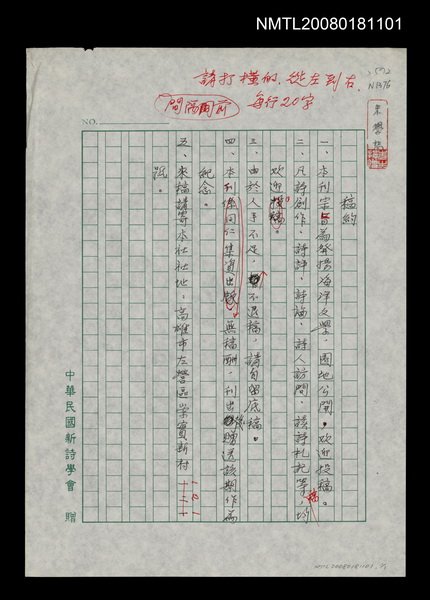 NMTL20080181101
請打橫的,從左到右,
每行20字
間隔同前
NO.
稿約
一、本刊宗旨為發揚海洋文學,園地公開,欢迎投稿。
二、凡詩創作、詩評、詩論、詩人訪問、讀詩札記等,均
欢迎賜稿。
三、由於人手不足,不退稿,請自留底稿。
四、本刊係同仁集資出錢,無稿酬,刊出後贈送該期作為
紀念。
五、來稿請寄本社社址:高雄市左營區崇實新村
號。
中華民國新詩學會 贈
NMTL20080181101